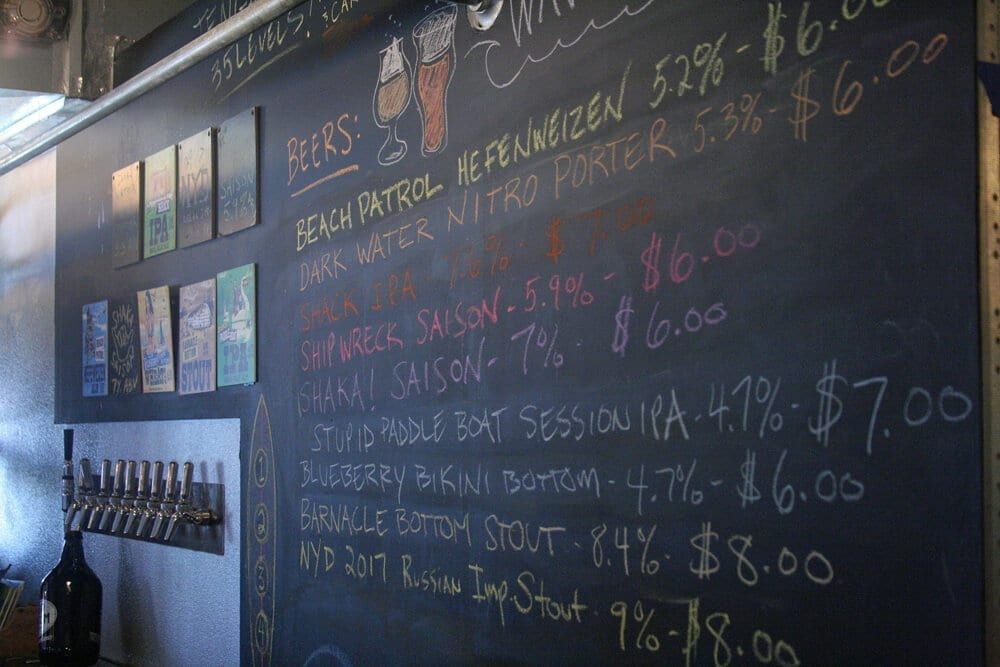 35 LEVELS!
BEERS:
BEACH PATROL HEFENWEIZEN 5.2% - $6.00
DARK WATER NITRO PORTER 5.3% - $6.00
SHACK IPA - 7.6% - $7.00
SHIPWRECK SAISON - 5.9% - $6.00
SHAKA! SAISON - 7% - $6.00
STUPID PADDLE BOAT SESSION IPA - 4.7% - $7.00
BLUEBERRY BIKINI BOTTOM - 4.7% - $6.00
BARNACLE BOTTOM STOUT - 8.4% - $8.00
NYD 2017 Russian Imp. Stout - 9% - $8.00
IPA
NYD
SAISON
STOUT
IPA
1
2
3
4